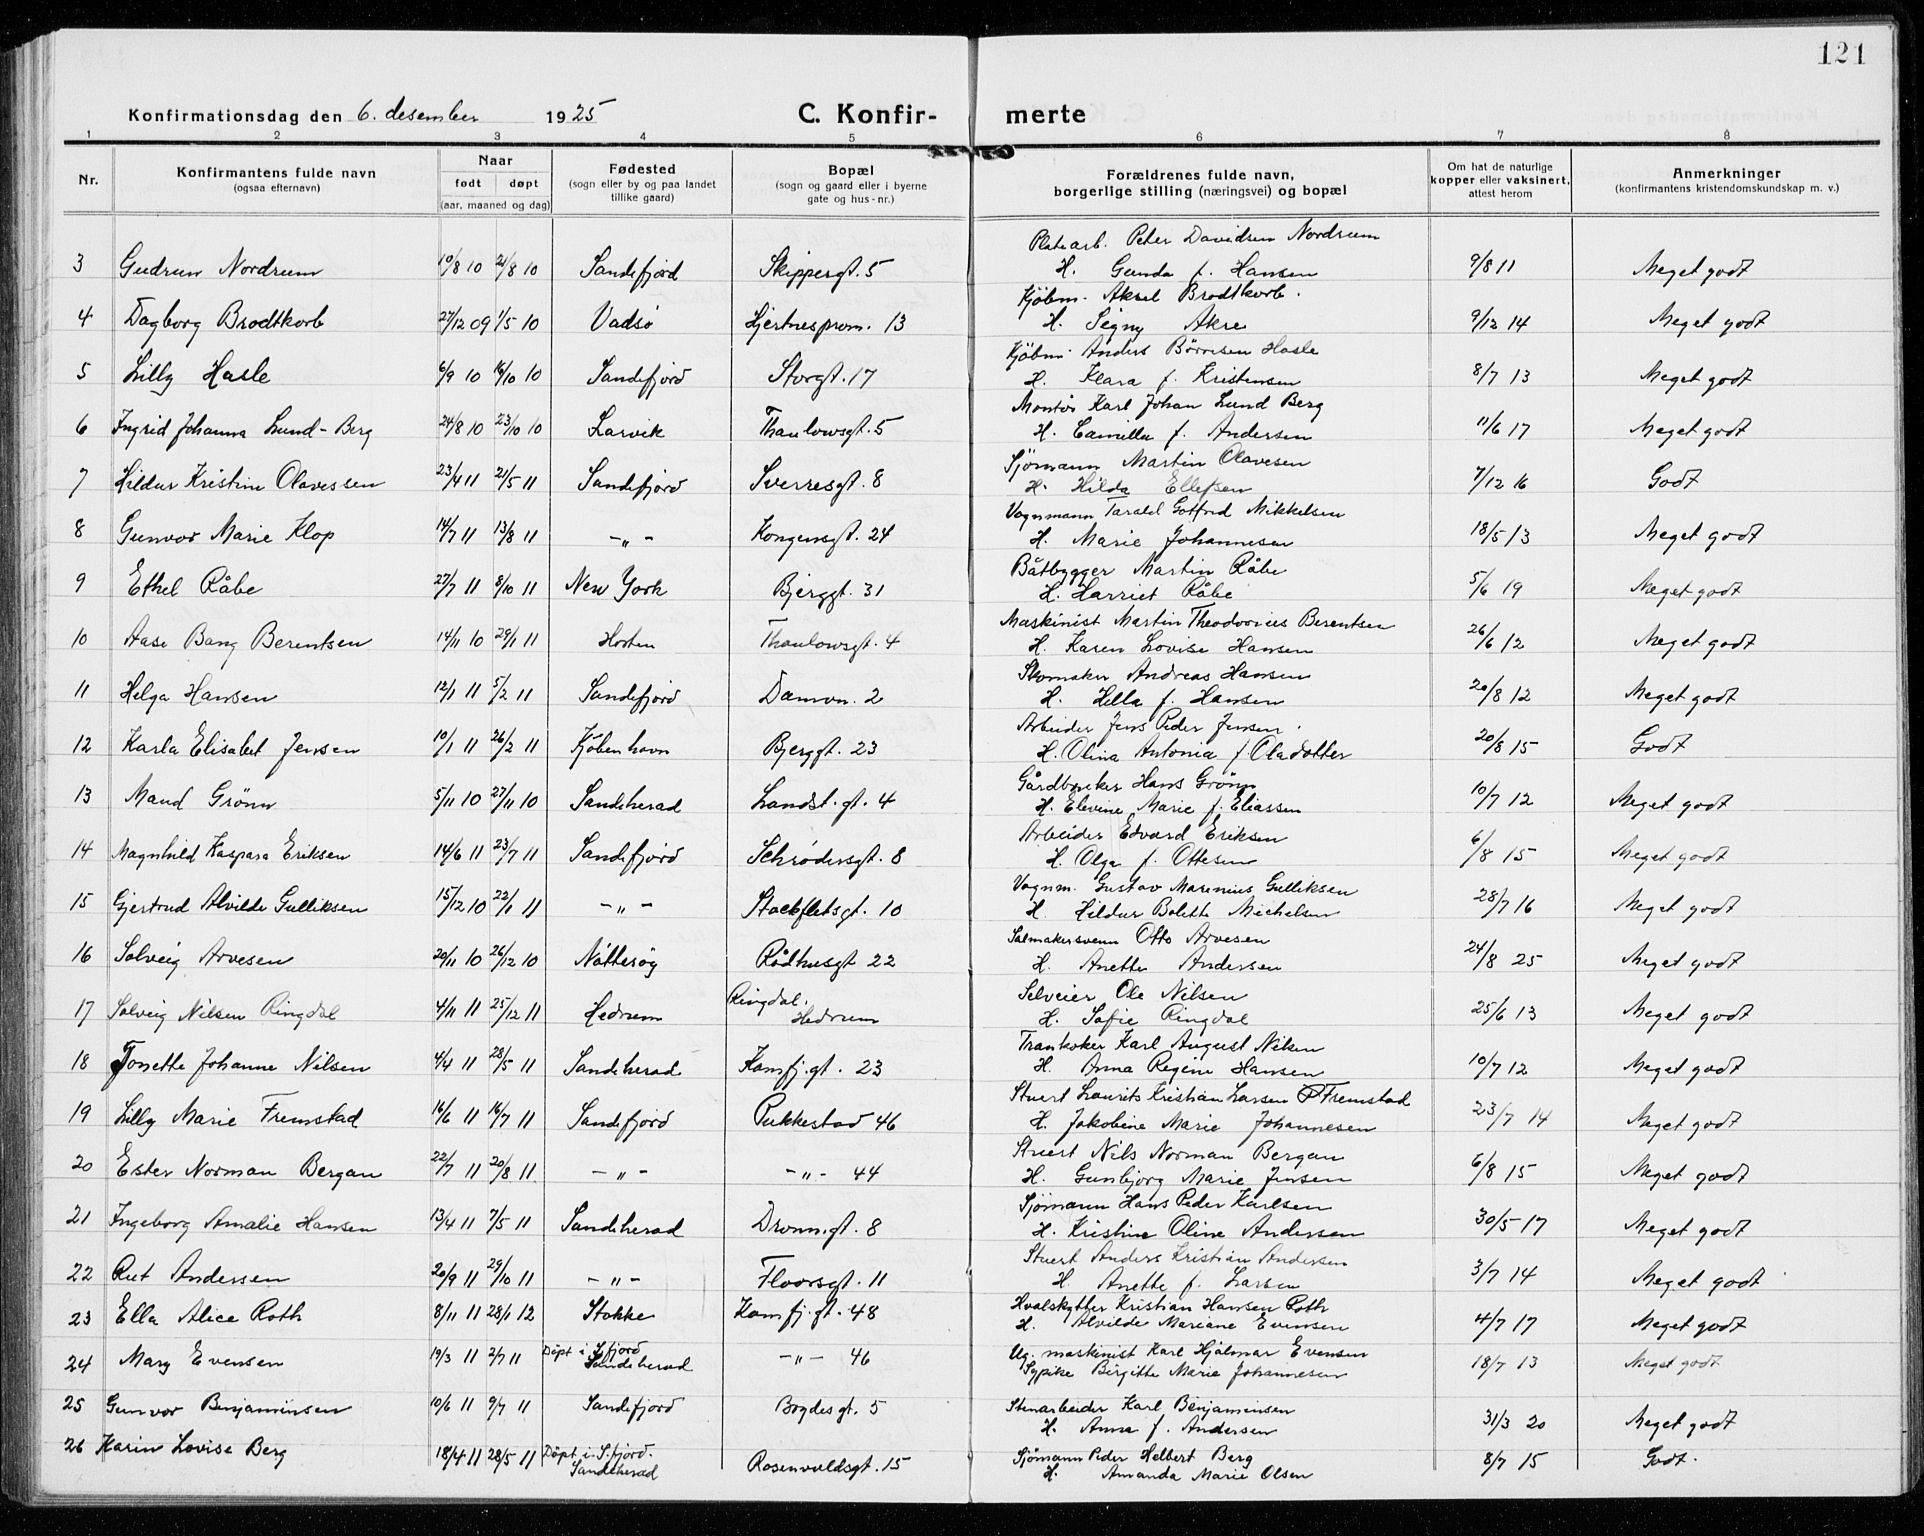 121
Konfirmationsdag den 6. desember 1925 C. Konfir- merte
1 2 3 4 5 6 7 8
Nr. Konfirmantens fulde navn (ogsaa efternavn) Naar født døpt (aar, maaned og dag) Fødested (sogn eller by og paa landet tillike gaard) Bopæl (sogn og gaard eller i byerne gate og hus-nr.) Forældrenes fulde navn, borgerlige stilling (næringsvei) og bopæl Om hat de naturlige kopper eller vaksinert, attest herom Anmerkninger (konfirmantens kristendomskundskap m. v.)
Platearb. Peter Davidsen Nordrum
3 Gudrun Nordrum 10/8 10 21/8 10 Sandefjord Skippergt. 5 H. Gunda f. Hansen 9/8 11 Meget godt
Kjøbm. Aksel Brodtkorb.
4 Dagborg Brodtkorb 27/12 09 1/5 10 Vadsø Hjertnesprom. 13 H. Signy Akre 9/12 14 Meget godt
Kjøbm. Anders Børresen Hasle
5 Lilly Hasle 6/9 10 16/10 10 Sandefjord Storgt. 17 H. Klara f. Kristensen 8/7 13 Meget godt
Montør Karl Johan Lund Berg
6 Ingrid Johanna Lund-Berg 24/8 10 23/10 10 Larvik Thaulowsgt. 5 H. Camilla f. Andersen 11/6 17 Meget godt
Sjømann Martin Olavesen
7 Hildur Kristine Olavessen 23/4 11 21/5 11 Sandefjord Sverresgt. 8 H. Hilda Ellefsen 7/12 16 Godt
Vognmann Tarald Gotfred Mikkelsen
8 Gunvor Marie Klop 14/7 11 13/8 11 -"- Kongensgt. 24 H. Marie Johannesen 18/5 13 Meget godt
Båtbygger Martin Råbe
9 Ethel Råbe 27/7 11 8/10 11 New York Bjerggt. 31 H. Harriet Råbe 5/6 19 Meget godt
Maskinist Martin Theodorius Berentsen
10 Aase Bang Berentsen 14/11 10 29/1 11 Horten Thaulowsgt. 4 H. Karen Lovise Hansen 26/6 12 Meget godt
Skomaker Andreas Hansen
11 Helga Hansen 12/1 11 5/2 11 Sandefjord Damvn. 2 H. Hella f. Hansen 20/8 12 Meget godt
Arbeider Jens Peder Jensen.
12 Karla Elisabet Jensen 10/1 11 26/2 11 Kjøbenhavn Bjerggt. 23 H. Olina Antonia f. Oladotter 20/8 15 Godt
Gårdbruker Hans Grönn
13 Maud Grönn 5/11 10 27/11 10 Sandeherad Landst. gt. 4 H. Elevine Marie f. Eliassen 10/7 12 Meget godt
Arbeider Edvard Eriksen
14 Magnhild Kaspara Eriksen 14/6 11 23/7 11 Sandefjord Schrødersgt. 8 H. Olga f. Ottesen 6/8 15 Meget godt
Vognm. Gustav Marenius Gulliksen
15 Gjertrud Alvilde Gulliksen 15/12 10 22/1 11 -"- Stockfletsgt. 10 H. Hildur Bolette Michelsen 28/7 16 Meget godt
Salmakersvenn Otto Arvesen
16 Solveig Arvesen 20/11 10 26/12 10 Nötteröy Rådhusgt 22 H. Anette Andersen 24/8 25 Meget godt
Selveier Ole Nilsen
17 Solveig Nilsen Ringdal 4/11 11 25/12 11 Hedrum Ringdal. Hedrum H. Sofie Ringdal 25/6 13 Meget godt
Trankoker Karl August Nilsen
18 Tonette Johanne Nilsen 4/4 11 28/5 11 Sandeherad Kamfj. gt. 23 H. Anna Regine Hansen 10/7 12 Meget godt
Stuert Laurits Kristian Larsen Fremstad
19 Lilly Marie Fremstad 16/6 11 16/7 11 Sandefjord Pukkestad 46 H. Jakobine Marie Johannesen 23/7 14 Meget godt
Stuert Nils Norman Bergan
20 Ester Norman Bergan 22/7 11 20/8 11 -"- -"- 44 H. Gunbjørg Marie Jensen 6/8 15 Meget godt
Sjømann Hans Peder Karlsen
21 Ingeborg Amalie Hansen 13/4 11 7/5 11 Sandeherad Dronn. gt. 8 H. Kristine Oline Andersen 30/5 17 Meget godt
Stuert Anders Kristian Andersen
22 Rut Andersen 20/9 11 29/10 11 -"- Floorsgt. 11 H. Anette f. Larsen 3/7 14 Meget godt
Hvalskytter Kristian Hansen Roth
23 Ella Alice Roth 8/11 11 28/1 12 Stokke Kamfj. gt. 48 H. Alvilde Mariane Evensen 4/7 17 Meget godt
Ug. maskinist Karl Hjalmar Evensen
24 Mary Evensen 19/3 11 2/7 11 Döpt i S.fjord Sandeherad -"- 46 Sypike Birgitte Marie Johannesen 18/7 13 Meget godt
Stenarbeider Karl Benjaminsen
25 Gunvor Benjaminsen 10/6 11 9/7 11 Sandefjord Bogdesgt. 5 H. Anna f. Andersen 31/3 20 Meget godt
Sjømann Peder Helbert Berg
26 Karin Lovise Berg 18/4 11 28/5 11 Döpt i S.fjord. Sandeherad Rosenvoldsgt. 15 H. Amanda Marie Olsen 8/7 15 Godt.